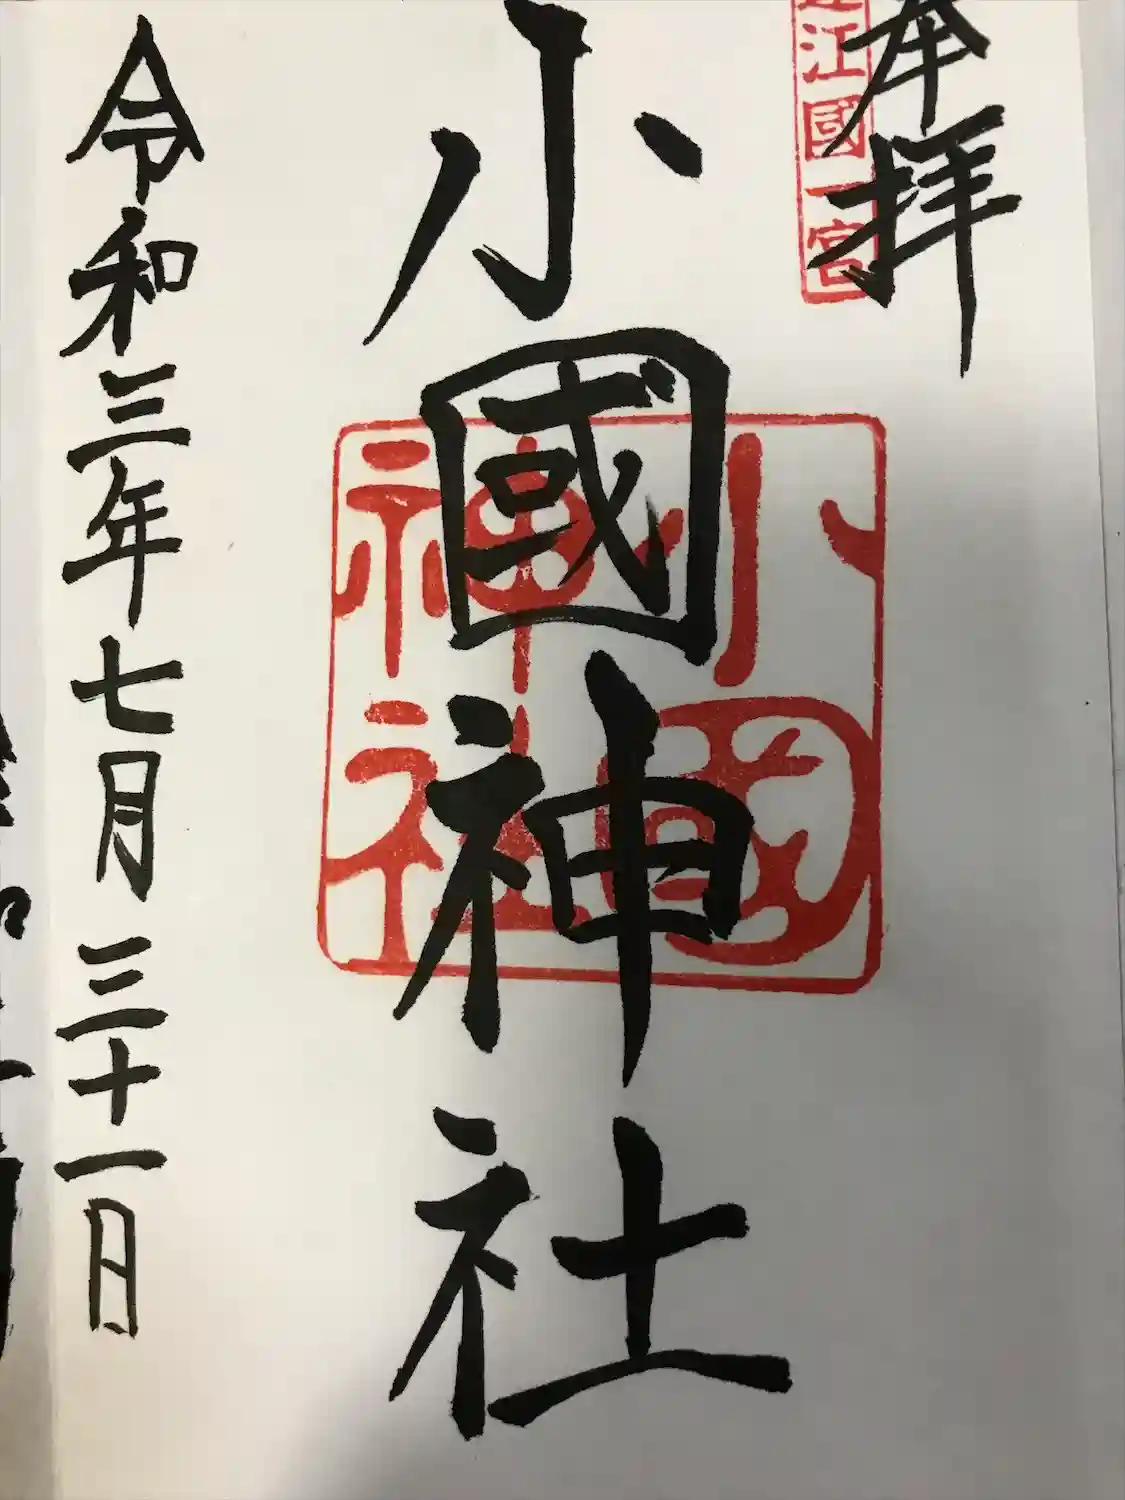 奉拝
江國一宮
小國神社
小國神社
令和三年七月三十一日